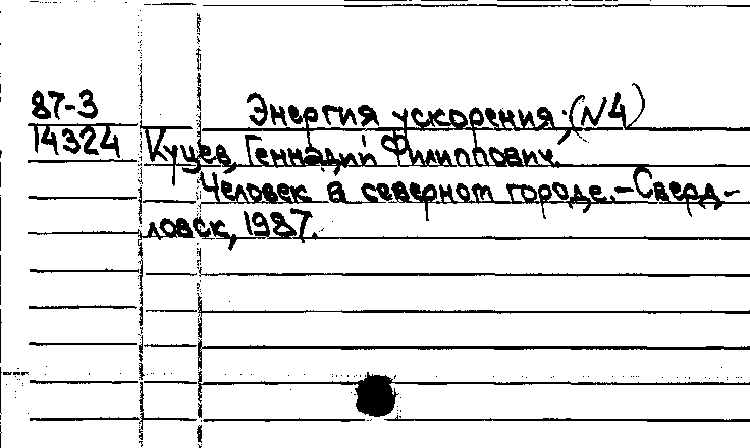 87-3 Энергия ускорения; (N4)
14324 Куцев, Геннадий Филиппович.
Человек в северном городе.-Сверд-
ловск, 1987.